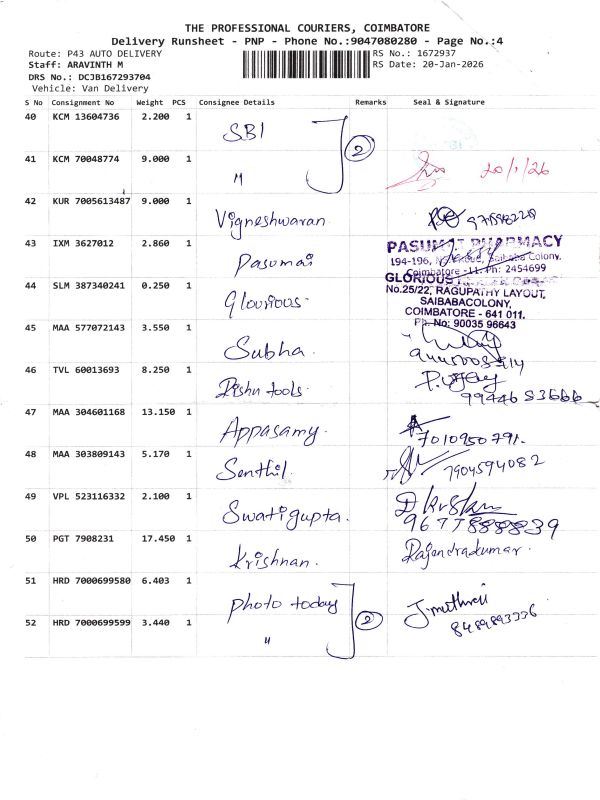 THE PROFESSIONAL COURIERS, COIMBATORE
Delivery Runsheet - PNP - Phone No.:9047080280 - Page No.:4
Route: P43 AUTO DELIVERY RS No.: 1672937
Staff: ARAVINTH M RS Date: 20-Jan-2026
DRS No.: DCJB167293704
Vehicle: Van Delivery
S No Consignment No Weight PCS Consignee Details Remarks Seal & Signature
40 KCM 13604736 2.200 1 SBI
2
41 KCM 70048774 9.000 1 " 20/1/26
42 KUR 7005613487 9.000 1 Vigneshwaran
43 IXM 3627012 2.860 1 Pasumai
PASUMAI PHARMACY
194-196, Saibaba Colony,
Coimbatore -11. Ph: 2454699
44 SLM 387340241 0.250 1 Glourious
GLORIOUS
No.25/22, RAGUPATHY LAYOUT,
SAIBABACOLONY,
COIMBATORE - 641 011.
Ph. No: 90035 96643
45 MAA 577072143 3.550 1 Subha
46 TVL 60013693 8.250 1 Dishu tools
99446 53666
47 MAA 304601168 13.150 1 Appasamy
7010950791
48 MAA 303809143 5.170 1 Senthil
7904594082
49 VPL 523116332 2.100 1 Swatigupta
50 PGT 7908231 17.450 1 Krishnan Rajendrakumar
51 HRD 7000699580 6.403 1 photo today
2
52 HRD 7000699599 3.440 1 "